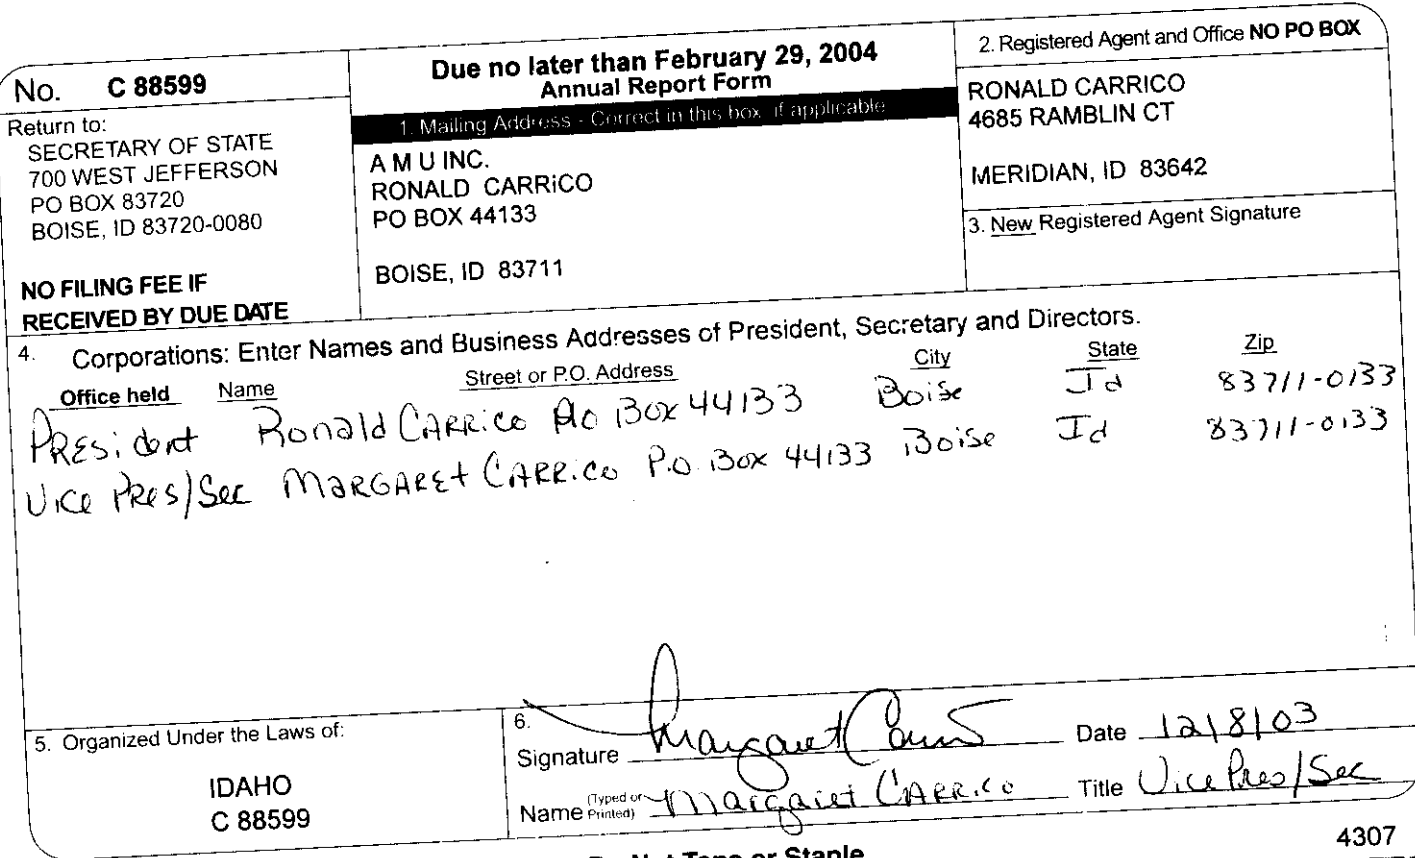 No. C 88599
Return to:
SECRETARY OF STATE
700 WEST JEFFERSON
PO BOX 83720
BOISE, ID 83720-0080
NO FILING FEE IF
RECEIVED BY DUE DATE
Due no later than February 29, 2004
Annual Report Form
1. Mailing Address - Correct in this box if applicable
A M U INC.
RONALD CARRiCO
PO BOX 44133
BOISE, ID 83711
2. Registered Agent and Office NO PO BOX
RONALD CARRICO
4685 RAMBLIN CT
MERIDIAN, ID 83642
3. New Registered Agent Signature
4. Corporations: Enter Names and Business Addresses of President, Secretary and Directors.
Office held Name Street or P.O. Address City State Zip
PRESident Ronald CARRico PO Box 44133 Boise Id 83711-0133
Vice PRes/Sec MARGAREt CARRico P.O. Box 44133 Boise Id 83711-0133
5. Organized Under the Laws of:
IDAHO
C 88599
6.
Signature Margaret Carrico Date 12/8/03
Name (Typed or Printed) Margaret CARRico Title Vice Pres/Sec
Do Not Tape or Staple
4307